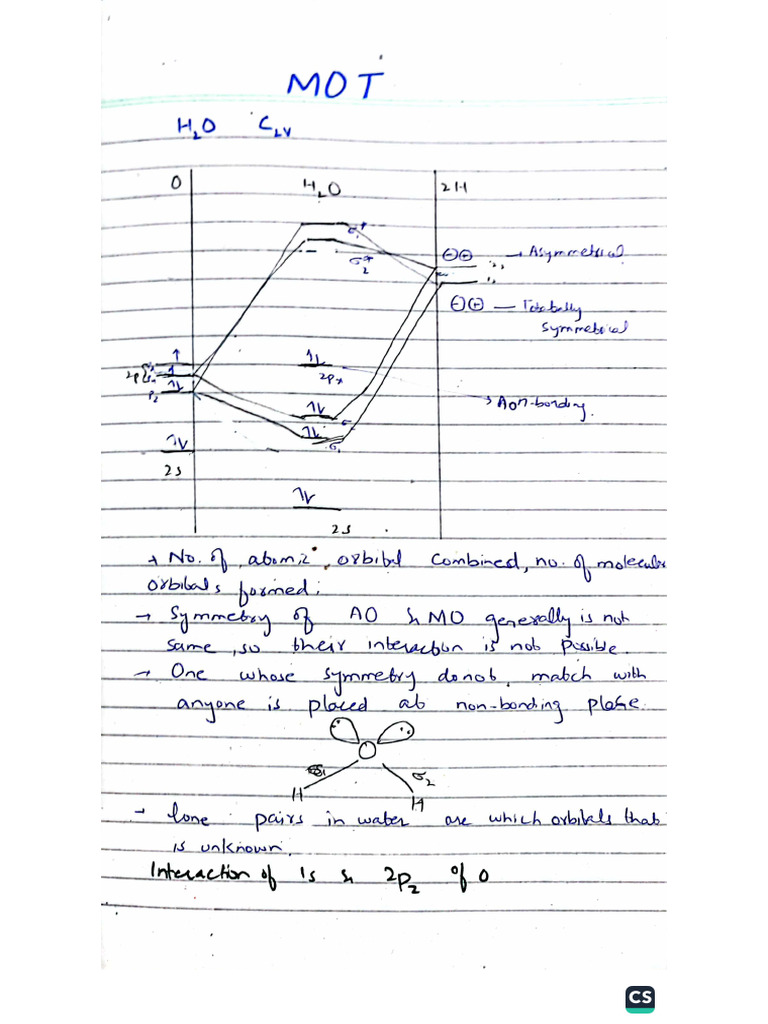 MOT
H2O C2v
O H2O 2H
σ1*
σ2*
⊖⊕ → Asymmetrical
⊖⊕ — Totally
symmetrical
2p
Pz
2px
→ Non-bonding.
σ
σ1
2s
2s
+ No. of atomic orbital combined, no. of molecular
orbitals formed.
→ Symmetry of AO & MO generally is not
same, so their interaction is not possible.
→ One whose symmetry donot match with
anyone is placed at non-bonding plane.
σ2
H H
- lone pairs in water are which orbitals that
is unknown.
Interaction of 1s & 2pz of O
CS